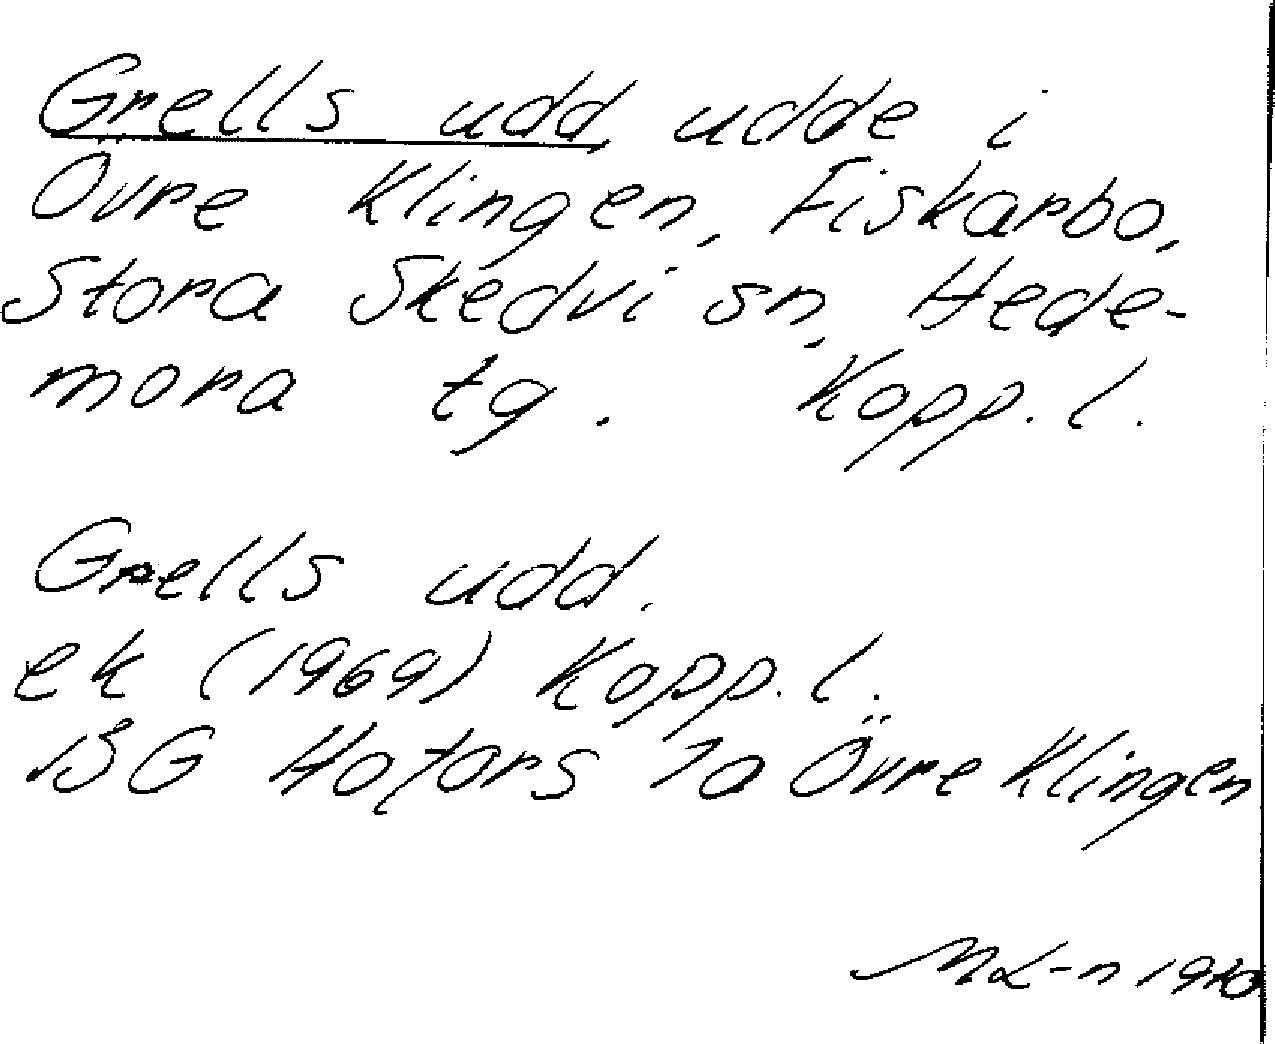 Grells udd, udde i
Övre Klingen, Fiskarbo,
Stora Skedvi sn, Hede-
mora tg. Kopp. l.
Grells udd.
ek (1969) Kopp. l.
BG Hofors 7a Övre Klingen